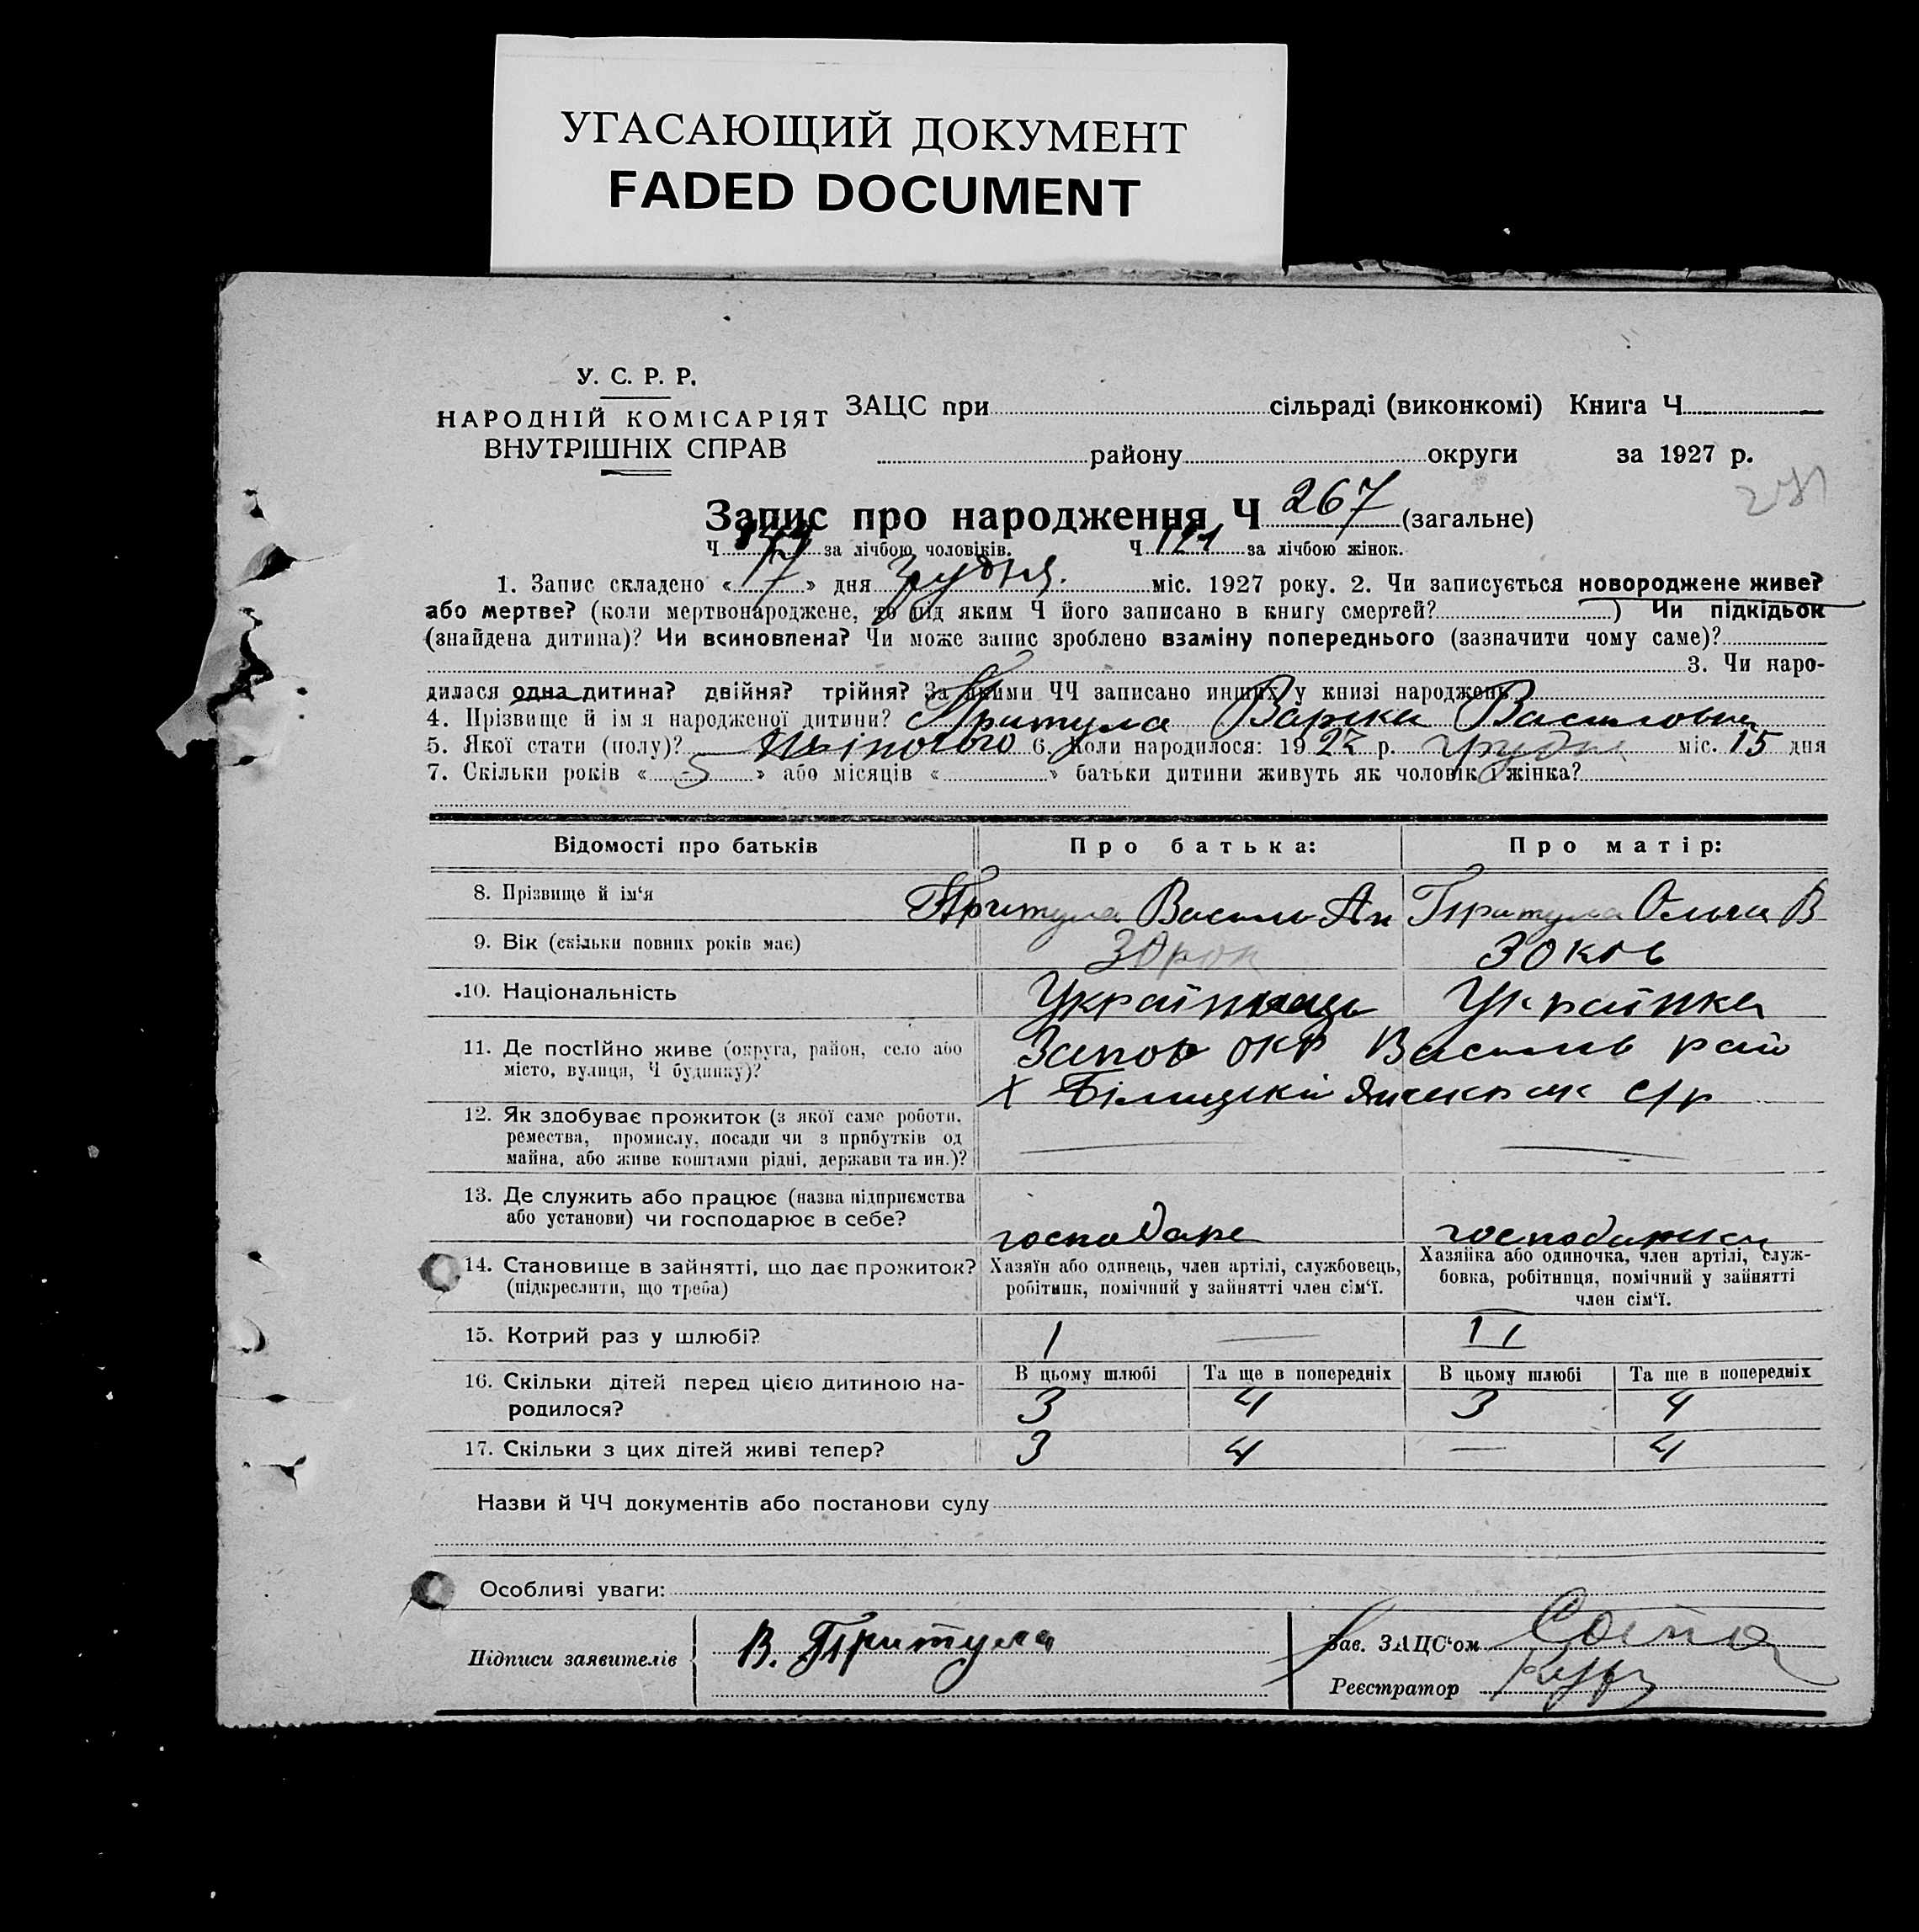 УГАСАЮЩИЙ ДОКУМЕНТ
FADED DOCUMENT
У. С. Р. Р.
НАРОДНІЙ КОМІСАРІЯТ
ВНУТРІШНІХ СПРАВ
ЗАЦС при сільраді (виконкомі) Книга Ч
району округи за 1927 р.
Запис про народження Ч 267 (загальне)
Ч за лічбою чоловіків. Ч 121 за лічбою жінок.
1. Запис складено « 17 » дня грудня міс. 1927 року. 2. Чи записується новороджене живе?
або мертве? (коли мертвонароджене, то під яким Ч його записано в книгу смертей? ) Чи підкідьок
(знайдена дитина)? Чи всиновлена? Чи може запис зроблено взаміну попереднього (зазначити чому саме)?
3. Чи наро-
дилася одна дитина? двійня? трійня? За якими ЧЧ записано инших у книзі народжень
4. Прізвище й ім я народженої дитини? Притула Варка Василовна
5. Якої стати (полу)? жіночого 6. Коли народилося: 1927 р. грудня міс. 15 дня
7. Скільки років « 5 » або місяців « » батьки дитини живуть як чоловік і жінка?
Відомості про батьків Про батька: Про матір:
8. Прізвище й ім‘я Притула Василь Ан Притула Ольга В
9. Вік (скільки повних років має) 30 рок 30
10. Національність Українець Українка
11. Де постійно живе (округа, район, село або Запов окр Василів рай
місто, вулиця, Ч будинку)? Х Біліцкій с/р
12. Як здобуває прожиток (з якої саме роботи,
ремества, промислу, посади чи з прибутків од
майна, або живе коштами рідні, держави та ин.)?
13. Де служить або працює (назва підприємства
або установи) чи господарює в себе? господаре господарка
14. Становище в зайнятті, що дає прожиток? (підкреслити, що треба)
Хазяїн або одинець, член артілі, службовець,
робітник, помічний у зайнятті член сім‘ї.
Хазяйка або одиночка, член артілі, служ-
бовка, робітниця, помічний у зайнятті
член сім‘ї.
15. Котрий раз у шлюбі? 1 — II
В цьому шлюбі Та ще в попередніх В цьому шлюбі Та ще в попередніх
16. Скільки дітей перед цією дитиною на-
родилося? 3 4 3 4
17. Скільки з цих дітей живі тепер? 3 4 — 4
Назви й ЧЧ документів або постанови суду
Особливі уваги:
Підписи заявителів В. Притула
Зав. ЗАЦС‘ом
Реєстратор